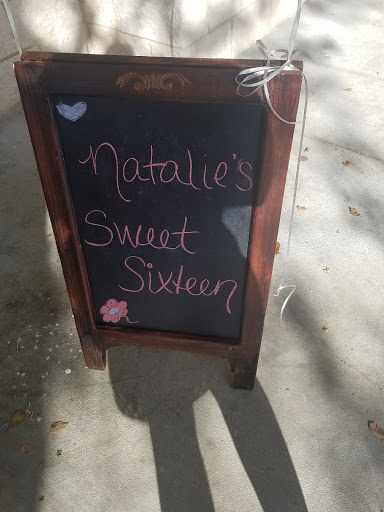 Natalie's
Sweet
Sixteen